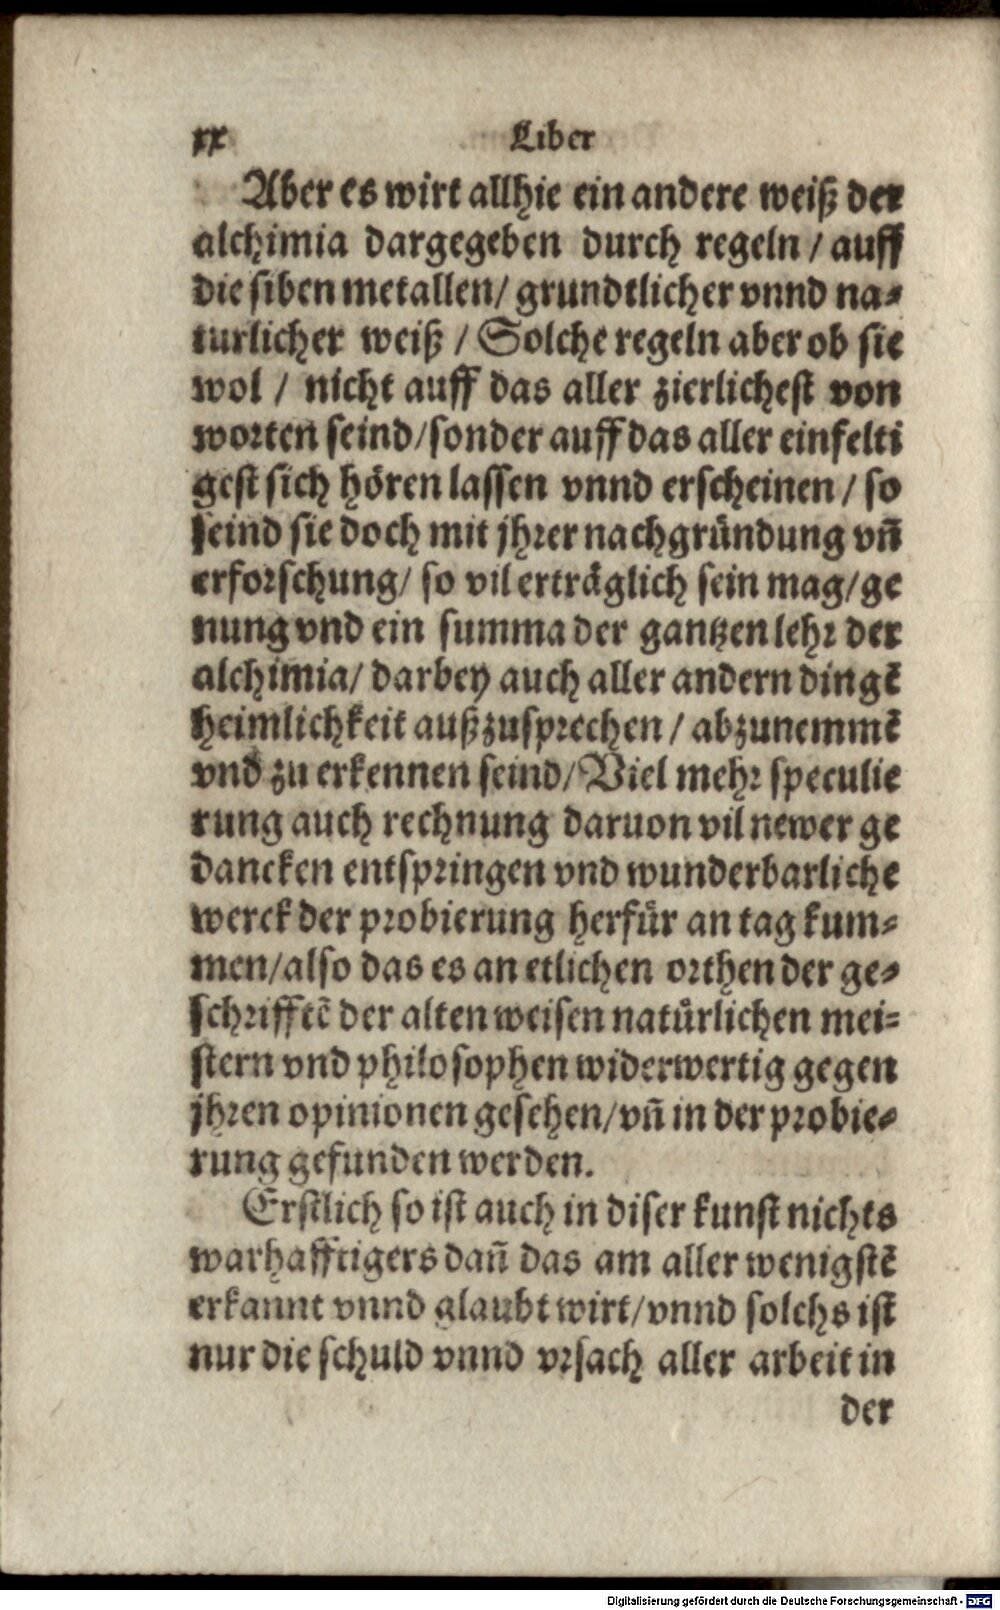 xx Liber
Aber es wirt allhie ein andere weiß der
alchimia dargegeben durch regeln / auff
die siben metallen/ grundtlicher vnnd na⸗
turlicher weiß / Solche regeln aber ob sie
wol / nicht auff das aller zierlichest von
worten seind/sonder auff das aller einfelti
gest sich hören lassen vnnd erscheinen / so
seind sie doch mit jhrer nachgründung vñ
erforschung/ so vil erträglich sein mag/ge
nung vnd ein summa der gantzen lehr der
alchimia/ darbey auch aller andern dingẽ
heimlichkeit außzusprechen / abzunemmẽ
vnd zu erkennen seind/Viel mehr speculie
rung auch rechnung daruon vil newer ge
dancken entspringen vnd wunderbarliche
werck der probierung herfür an tag kum⸗
men/also das es an etlichen orthen der ge⸗
schrifftẽ der alten weisen natürlichen mei⸗
stern vnd philosophen widerwertig gegen
jhren opinionen gesehen/vñ in der probie⸗
rung gefunden werden.
Erstlich so ist auch in diser kunst nichts
warhafftigers dañ das am aller wenigstẽ
erkannt vnnd glaubt wirt/vnnd solchs ist
nur die schuld vnnd vrsach aller arbeit in
der
Digitalisierung gefördert durch die Deutsche Forschungsgemeinschaft - DFG